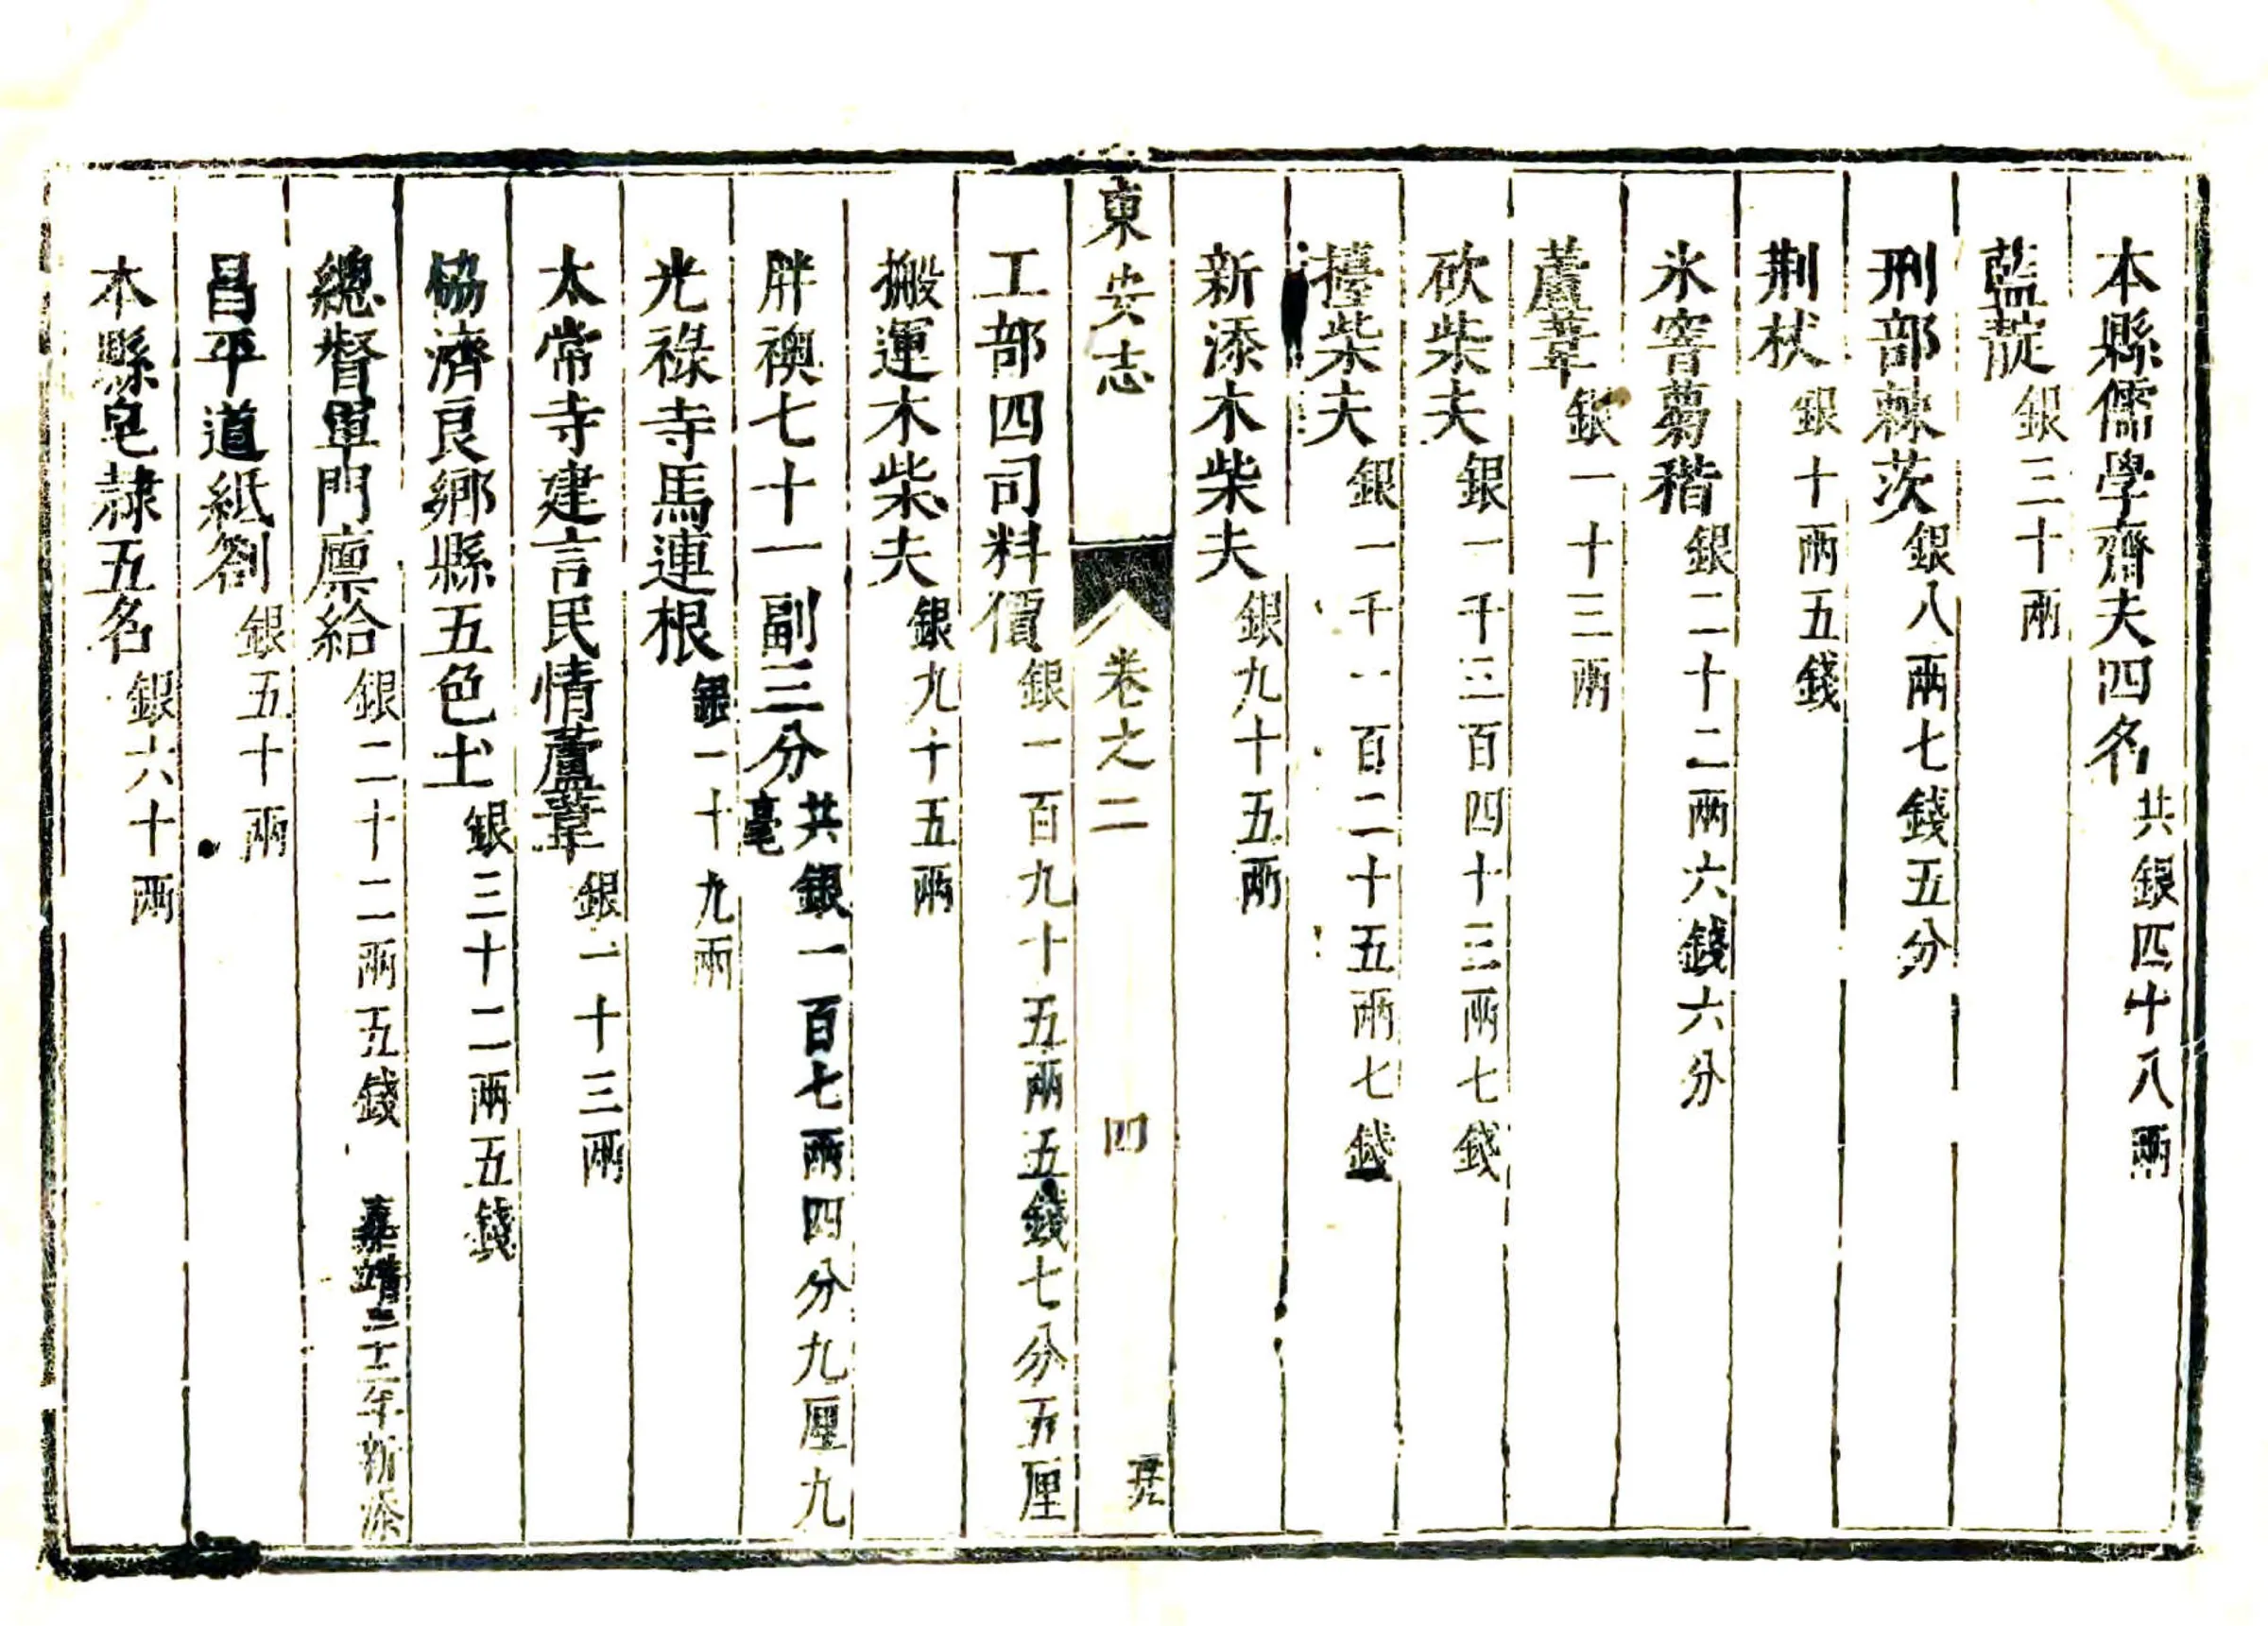 本縣儒學齋夫四名共銀四十八兩
藍靛銀三十兩
刑部棘茨銀八兩七錢五分
荆杖銀十兩五錢
氷窖蒭稭銀二十二兩六錢六分
蘆葦銀一十三兩
砍柴夫銀一千三百四十三兩七錢
擡柴夫銀一千一百二十五兩七錢
新添木柴夫銀九十五兩
東安志 卷之二 四
工部四司料價銀一百九十五兩五錢七分五厘
搬運木柴夫銀九十五兩
胖襖七十一副三分共銀一百七兩四分九厘九毫
光祿寺馬連根銀一十九兩
太常寺建言民情蘆葦銀一十三兩
協濟良鄉縣五色土銀三十二兩五錢
總督軍門廪給銀二十二兩五錢 嘉靖三十二年新添
昌平道紙劄銀五十兩
本縣皂隷五名銀六十兩